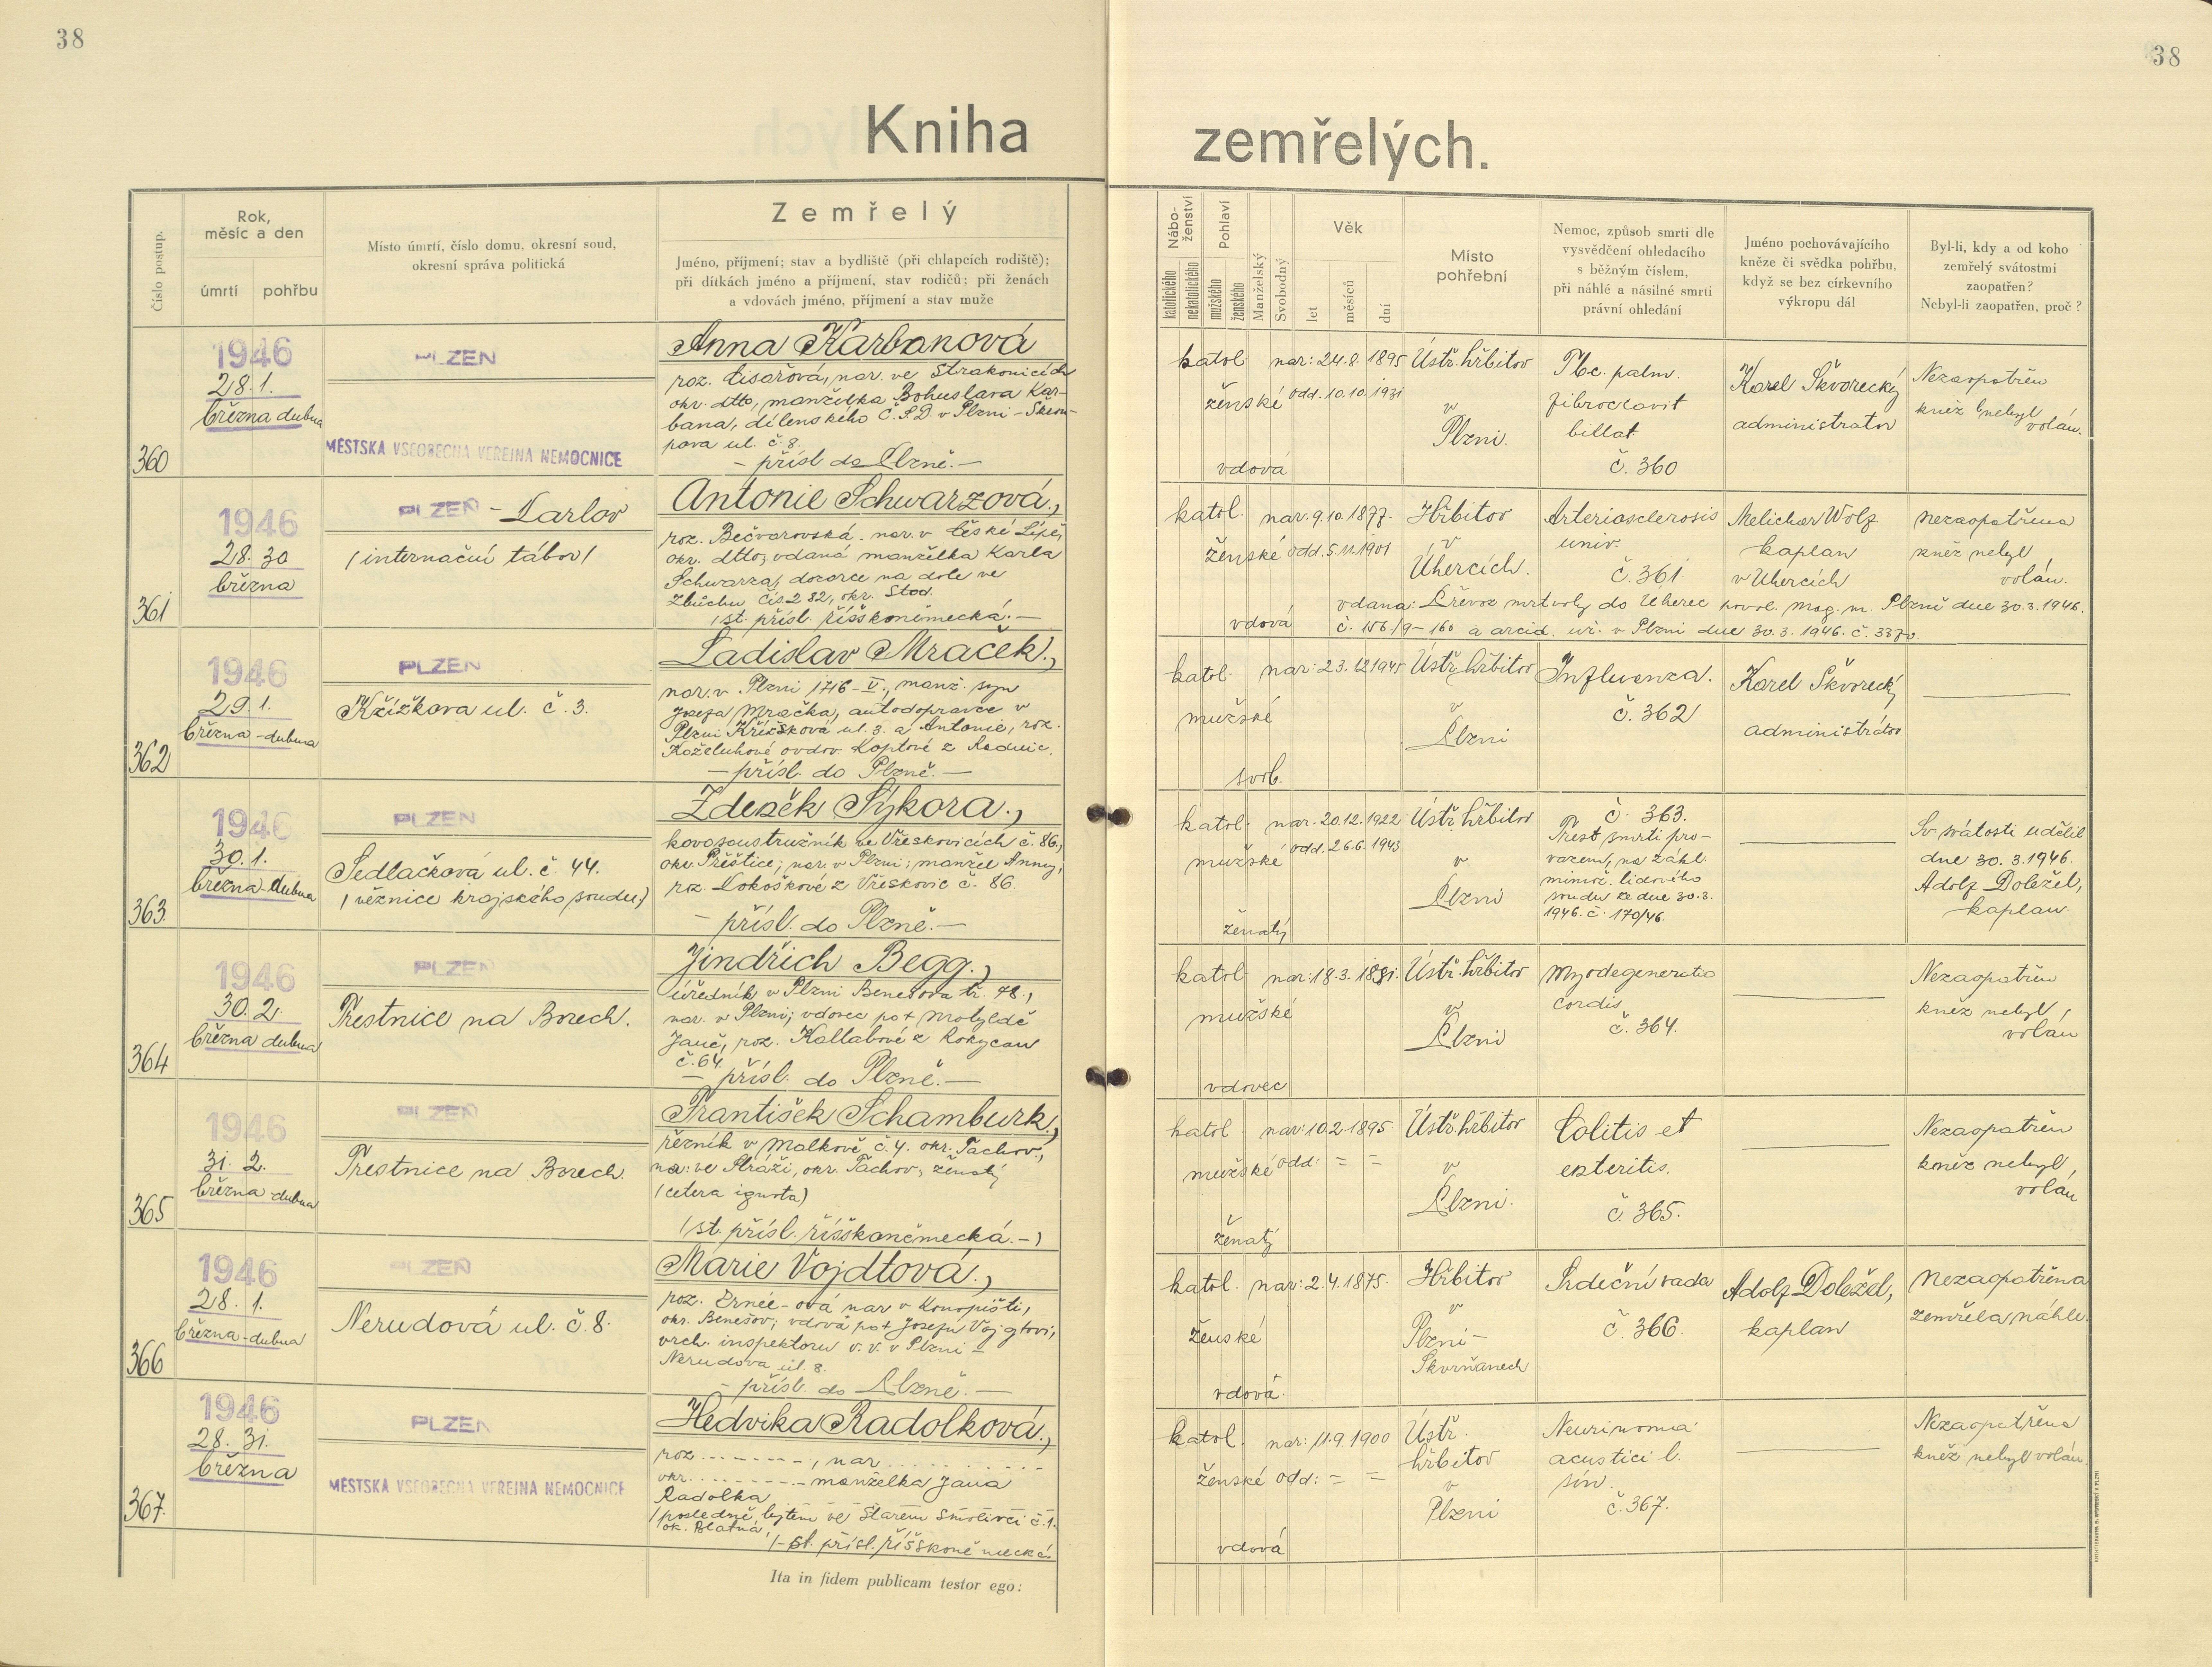 38
38
Kniha zemřelých.
Číslo postup.
Rok,
měsíc a den
úmrtí
pohřbu
Místo úmrtí, číslo domu, okresní soud,
okresní správa politická
Zemřelý
Jméno, příjmení; stav a bydliště (při chlapcích rodiště);
při dítkách jméno a příjmení, stav rodičů; při ženách
a vdovách jméno, příjmení a stav muže
Nábo-
ženství
katolického
nekatolického
Pohlaví
mužského
ženského
Manželský
Svobodný
Věk
let
měsíců
dní
Místo
pohřební
Nemoc, způsob smrti dle
vysvědčení ohledacího
s běžným číslem,
při náhlé a násilné smrti
právní ohledání
Jméno pochovávajícího
kněze či svědka pohřbu,
když se bez církevního
výkropu dál
Byl-li, kdy a od koho
zemřelý svátostmi
zaopatřen?
Nebyl-li zaopatřen, proč?
360
1946
28. 1.
března dubna
PLZEŇ
MĚSTSKÁ VŠEOBECNÁ VEŘEJNÁ NEMOCNICE
Anna Karbanová
roz. Cisařová, nar. ve Strakonicích
okr. dtto, manželka Bohuslava Kar-
bana, dílenského Č.S.D v Plzni -
pova ul. č. 8.
- přísl. do Plzně. -
katol.
ženské
vdová
nar: 24.8. 1895
odd. 10.10.1931
Ústř. hřbitov
v
Plzni.
Tbc. pulm.
billat.
č. 360
Karel Škvorecký
administrator
Nezaopatřen
kněz nebyl
volán.
361
1946
28. 30
března
PLZEŇ - Karlov
/internační tábor/
Antonie Schwarzová,
roz. Bečvarovská. nar. v České Lípě,
okr. dtto, vdaná manželka Karla
Schwarza, dozorce na dole ve
Zbůchu čís. 282, okr. Stod.
/st. přísl. říšskoněmecká. -
katol.
ženské
vdová
nar. 9.10.1877.
odd. 5.11.1901
Hřbitov
v
Úhercích.
Arteriosclerosis
univ.
č. 361.
Melichar Wolf
kaplan
v Uhercích
nezaopatřena
kněz nebyl
volán.
vdana: Převoz mrtvoly do Uherec povol. mag. m. Plzně dne 30.3.1946.
č. 156/9-160 a arcid. uř. v Plzni dne 30.3.1946. č. 3370
362
1946
29. 1.
března - dubna
PLZEŇ
Křížkova ul. č. 3.
Ladislav Mraček.,
nar. v Plzni 1716-V., manž. syn
Josefa Mračka, autodopravce v
Plzni Křížková ul. 3. a Antonie, roz.
Koželuhové ovdov. Koptové z Radnic.
- přísl. do Plzně. -
katol.
mužské
svob.
nar: 23.12.1945
Ústř. hřbitov
v
Plzni
Influenza.
č. 362
Karel Škvorecký
administrátor
363
1946
30. 1.
března - dubna
PLZEŇ
Sedlačková ul. č. 44.
/věznice krajského soudu/
Zdeněk Sýkora.,
kovosoustružník ve Vřeskovicích č. 86,
okr. Přeštice; nar. v Plzni; manžel Anny,
roz. Lokoškové z Vřeskovic č. 86.
- přísl. do Plzně. -
katol.
mužské
ženatý
nar. 20.12.1922
odd. 26.6.1943
Ústř. hřbitov
v
Plzni
č. 363.
Trest smrti pro-
vazem, na zákl.
mimoř. lidového
soudu ze dne 30.3.
1946. č. 170/46.
Sv. svátosti udělil
dne 30.3.1946.
Adolf Doležel,
kaplan.
364
1946
30. 2.
března dubna
PLZEŇ
Trestnice na Borech.
Jindřich Begg.,
úředník v Plzni Benešova tř. 48.,
nar. v Plzni; vdovec po + Matyldě
Janě, roz. Kallabové z Rokycan
č. 64.
- přísl. do Plzně. -
katol.
mužské
vdovec
nar: 18.3. 1881.
Ústř. hřbitov
v
Plzni
Myodegeneratio
cordis
č. 364.
Nezaopatřen
kněz nebyl,
volán
365
1946
31. 2.
března - dubna
PLZEŇ
Trestnice na Borech.
František Schamburk.,
řezník v Malkově č. 4. okr. Tachov,
nar: ve Stráži, okr. Tachov, ženatý
(cetera ignota)
/st. přísl. říšskoněmecká. -/
katol.
mužské
ženatý
nar: 10.2.1895.
odd: = =
Ústř. hřbitov
v
Plzni.
Colitis et
enteritis.
č. 365.
Nezaopatřen
kněz nebyl,
volán
366
1946
28. 1.
března - dubna
PLZEŇ
Nerudová ul. č. 8.
Marie Vojdtová.,
nar v Konopišti,
okr. Benešov; vdová po + Josefu
vrch. inspektoru v.v. v Plzni -
Nerudova ul. 8.
- přísl. do Plzně. -
katol.
ženské
vdová.
nar: 2.4.1875.
Hřbitov
v
Plzni -
Skvrňanech
Srdeční vada
č. 366.
Adolf Doležel,
kaplan
Nezaopatřena
zemřela náhle.
367.
1946
28. 31.
března
PLZEŇ
MĚSTSKÁ VŠEOBECNÁ VEŘEJNÁ NEMOCNICE
Hedvika Radolková.,
roz. - - - - - -, nar. . . . . . . .
okr. - - - - - - manželka Jana
Radolka
/posledně bytem ve Starém Smolivci č. 1.
ok. Blatná,
/- st. přísl. říšskoněmecká.
katol.
ženské
vdová
nar: 11.9.1900
odd: = =
Ústř.
hřbitov
v
Plzni
Neurinoma
acustici l.
sin.
č. 367.
Nezaopatřena
kněz nebyl volán.
Ita in fidem publicam testor ego: